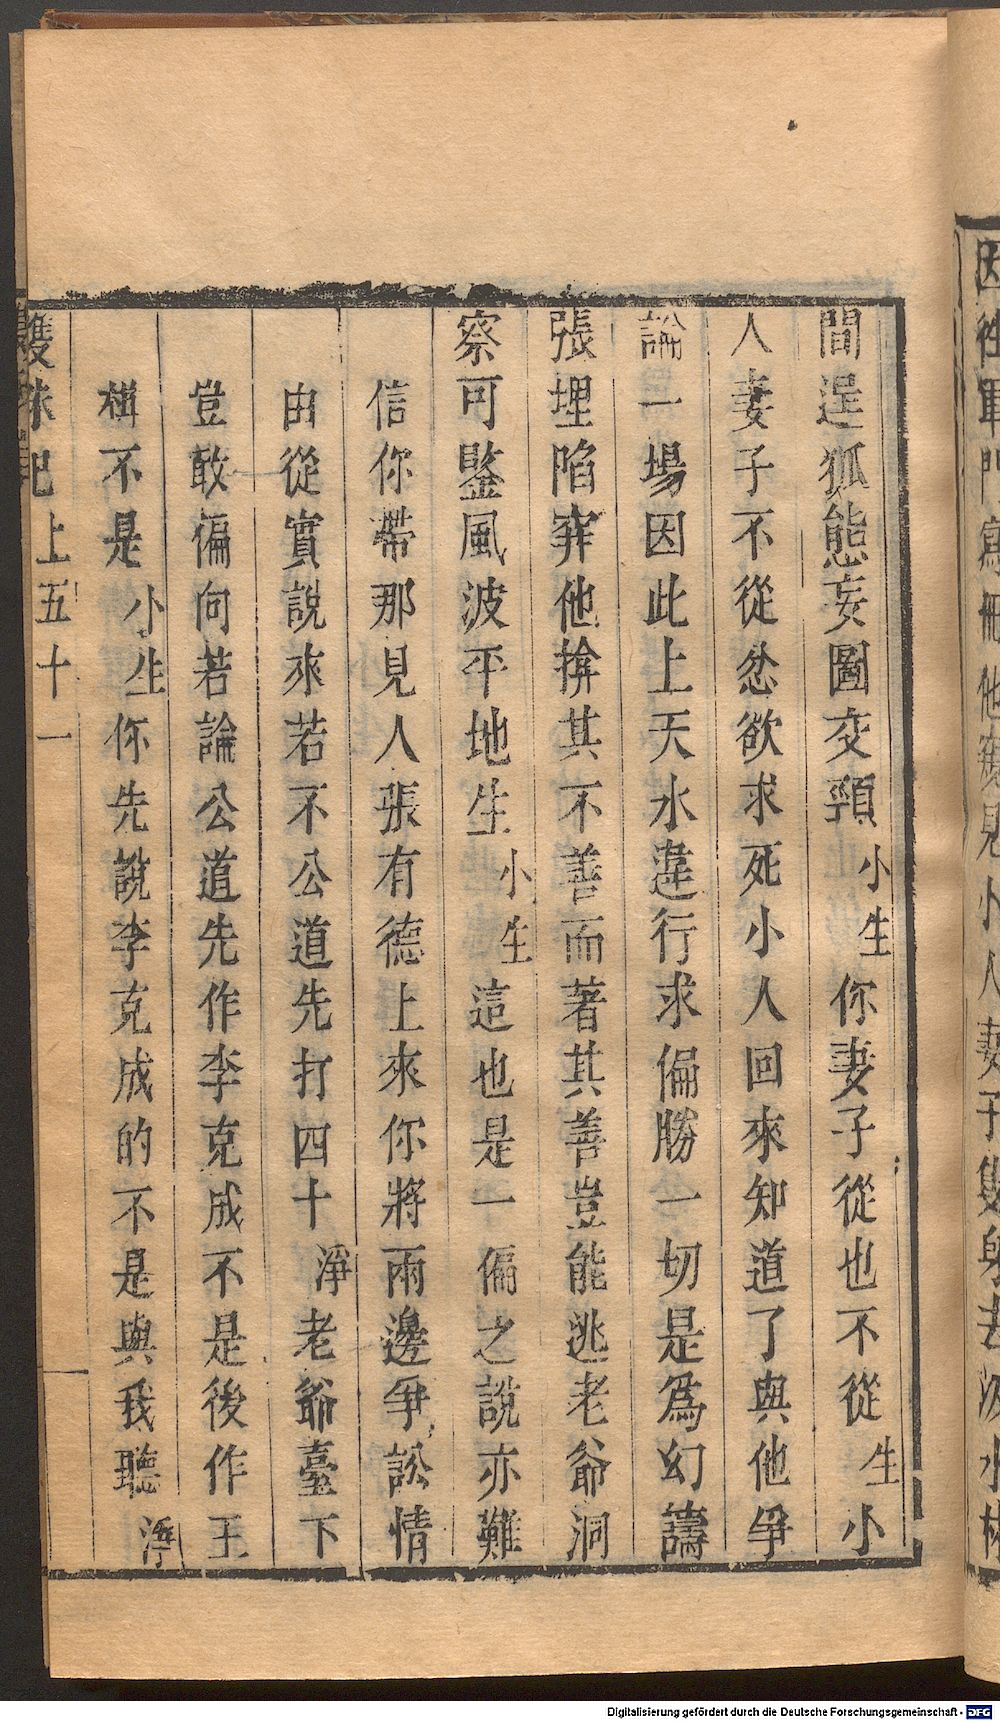 間逞狐態妄圖交頸小生你妻子從也不從生小
人妻子不從忿欲求死小人回來知道了與他爭
論一場因此上天水違行求偏勝一切是爲幻譸
張埋陷穽他揜其不善而著其善豈能逃老爺洞
察可鑒風波平地生小生這也是一偏之說亦難
信你帶那見人張有德上來你將兩邊爭訟情
由從實說來若不公道先打四十淨老爺臺下
豈敢偏向若論公道先作李克成不是後作王
楫不是小生你先說李克成的不是與我聽淨
雙珠記上五十一
因從軍門寫冊他窺見小人妻子隻身去汲水
Digitalisierung gefördert durch die Deutsche Forschungsgemeinschaft - DFG